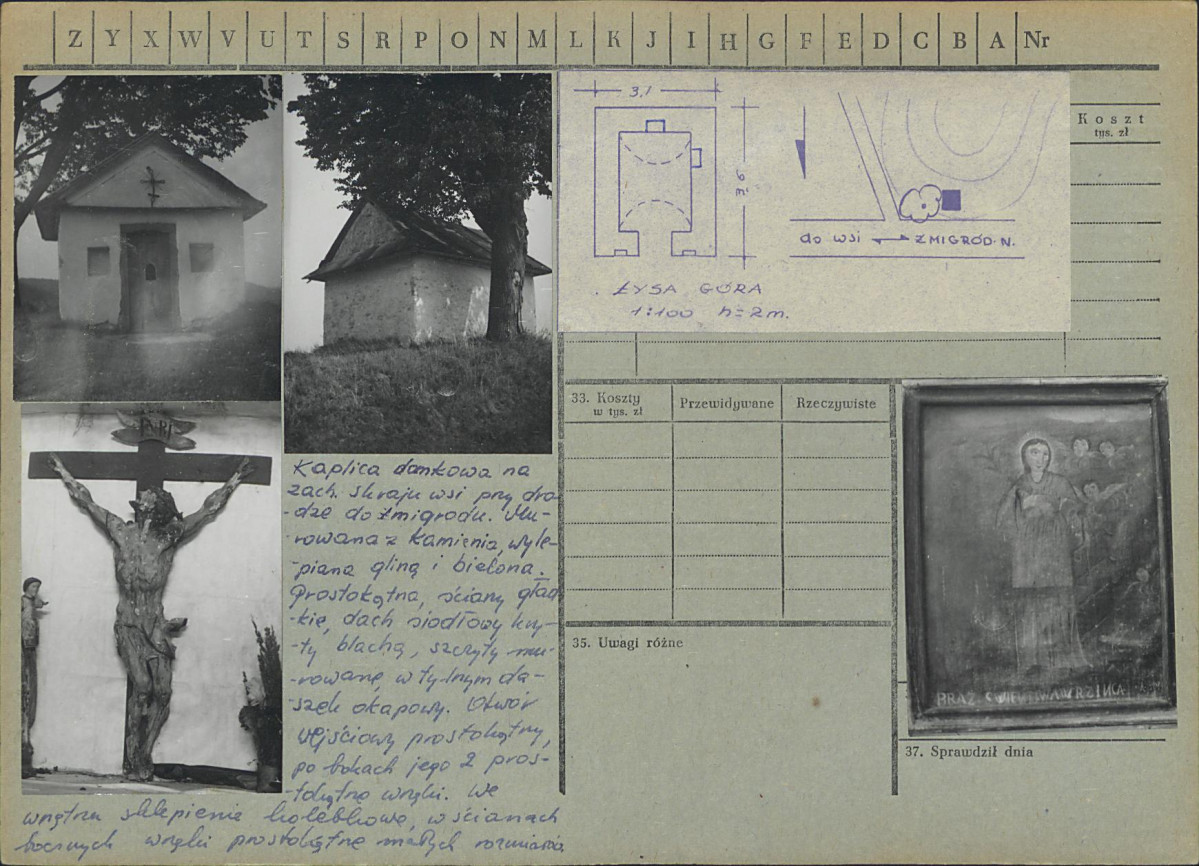 Z Y X W V U T S R P O N M L K J I H G F E D C B A Nr
3,1
3,6
do wsi ZMIGRÓD-N.
ŁYSA GÓRA
1:100 h=2m.
Koszt
tys. zł
INRI
Kaplica domkowa na
zach. skraju wsi przy dro-
-dze do Żmigrodu. Mu-
-rowana z kamienia, wyle-
-piana gliną i bielona.
Prostokątna, ściany gład-
-kie, dach siodłowy kry-
-ty blachą, szczyty mu-
-rowane, w tylnym da-
-szek okapowy. Otwór
wejściowy prostokątny,
po bokach jego 2 pros-
-tokątne wnęki. We
wnętrzu sklepienie kolebkowe, w ścianach
bocznych wnęki prostokątne małych rozmiarów.
33. Koszty
w tys. zł
Przewidywane
Rzeczywiste
35. Uwagi różne
37. Sprawdził dnia